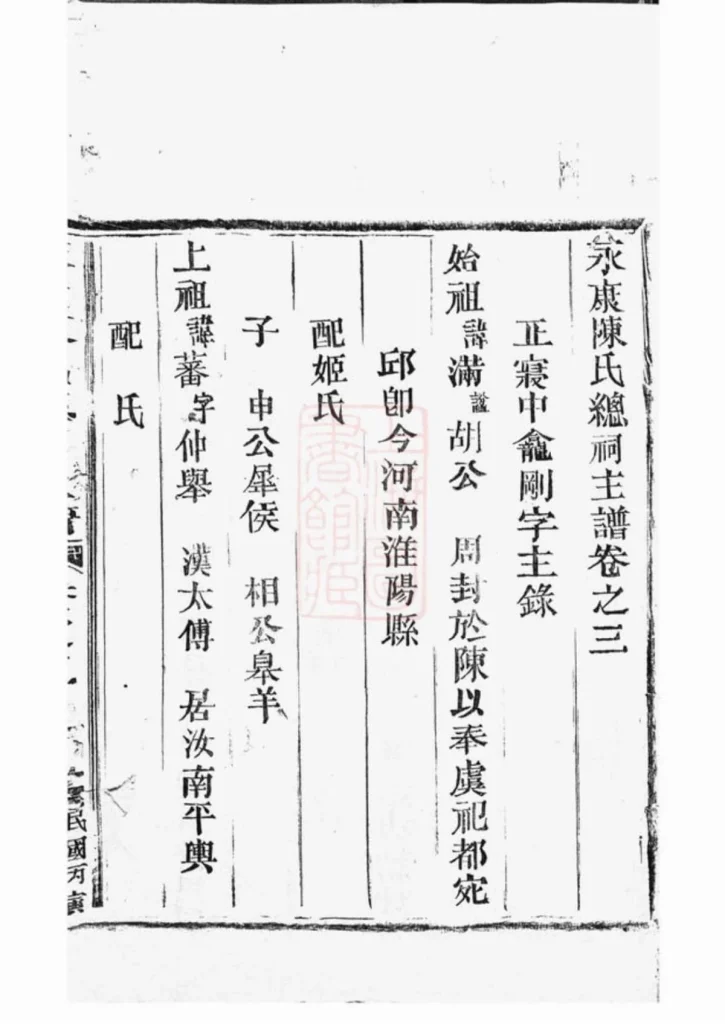 永康陳氏總祠主譜卷之三
正寢中龕剛字主錄
始祖諱滿諡胡公 周封於陳以奉虞祀都宛
邱卽今河南淮陽縣
配姬氏
子 申公犀侯 相公皋羊
上祖諱蕃字仲舉 漢太傅 居汝南平輿
配 氏
民國丙寅